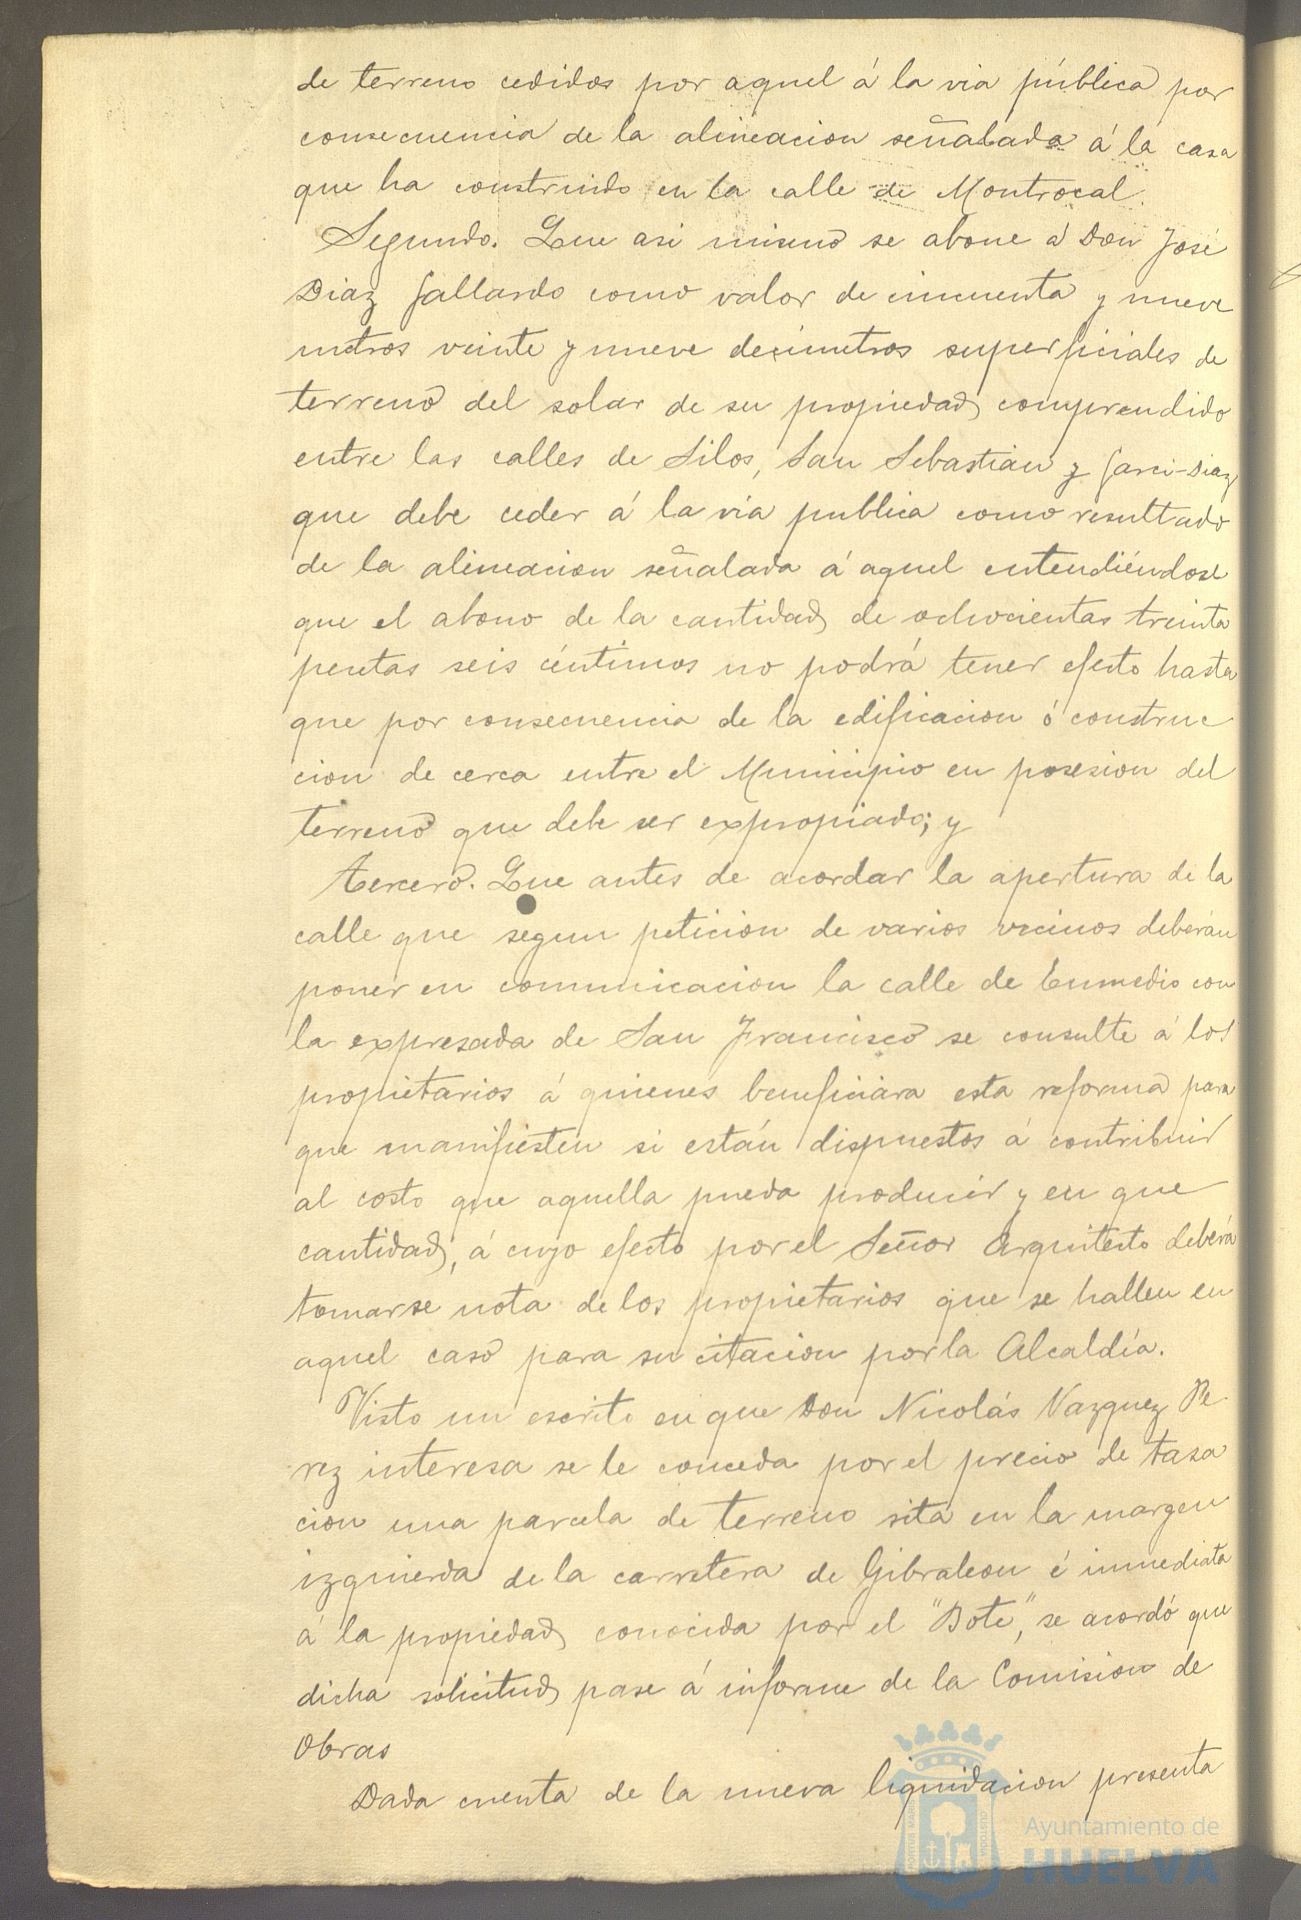 de terreno cedidos por aquel á la via pública por
consecuencia de la alineacion señalada á la casa
que ha construido en la calle de Montrocal.
Segundo. Que asi mismo se abone á Don José
Diaz Gallardo como valor de cincuenta y nueve
metros veinte y nueve decimetros superficiales de
terreno del solar de su propiedad, comprendido
entre las calles de Silos, San Sebastian y Garci-Diaz
que debe ceder á la via publica como resultado
de la alineacion señalada á aquel entendiéndose
que el abono de la cantidad, de ochocientas treinta
pesetas seis céntimos no podrá tener efecto hasta
que por consecuencia de la edificacion ó construc
cion de cerca entre el Municipio en posesion del
terreno que debe ser expropiado; y
Tercero. Que antes de acordar la apertura de la
calle que segun peticion de varios vecinos deberán
poner en comunicacion la calle de Enmedio con
la expresada de San Francisco se consulte á los
propietarios á quienes beneficiara esta reforma para
que manifiesten si están dispuestos á contribuir
al costo que aquella pueda producir y en que
cantidad, á cuyo efecto por el Señor Arquitecto deberá
tomarse nota de los propietarios que se hallen en
aquel caso para su citacion por la Alcaldía.
Visto un escrito en que Don Nicolás Vazquez Pe
rez interesa se le conceda por el precio de tasa
cion una parcela de terreno sita en la margen
izquierda de la carretera de Gibraleon é inmediata
á la propiedad, conocida por el "Bote", se acordó que
dicha solicitud, pase á informe de la Comision de
Obras
Dada cuenta de la nueva liquidacion presenta
Ayuntamiento de
HUELVA